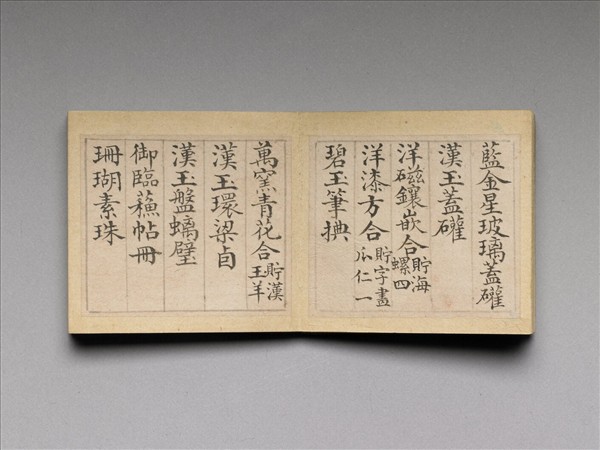 藍金星玻璃蓋礶
漢玉蓋礶
洋磁鑲嵌合貯海螺四
洋漆方合貯字畫瓜仁一
碧玉筆㨆
萬窯青花合貯漢玉羊
漢玉環梁卣
漢玉盤螭璧
御臨蘓帖冊
珊瑚素珠